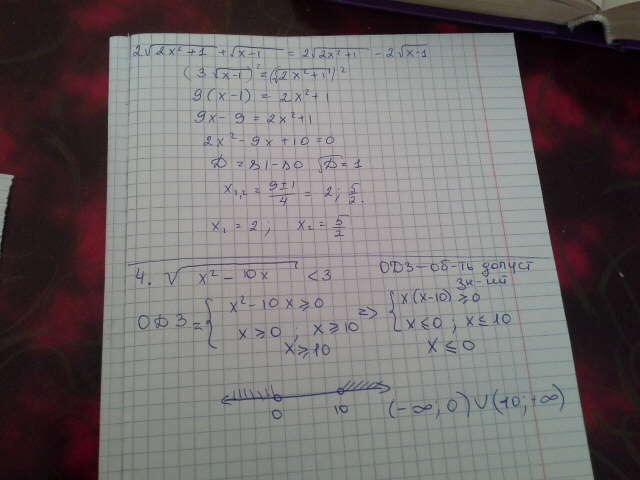 2√2x²+1 + √x-1 = 2√2x²+1 - 2√x-1
(3√x-1)² = (√2x²+1)²
9(x-1) = 2x²+1
9x-9 = 2x²+1
2x²-9x+10=0
D = 81-80 √D=1
x₁,₂ = 9±1/4 = 2; 5/2.
x₁ = 2; x₂ = 5/2
4. √x²-10x < 3 ОДЗ-об-ть допуст
зн-ий
ОДЗ = { x²-10x ≥ 0 => { x(x-10) ≥ 0
x ≥ 0; x ≥ 10 x ≤ 0; x ≤ 10
x ≥ 10 x ≤ 0
0 10 (-∞; 0) ∪ (10; +∞)